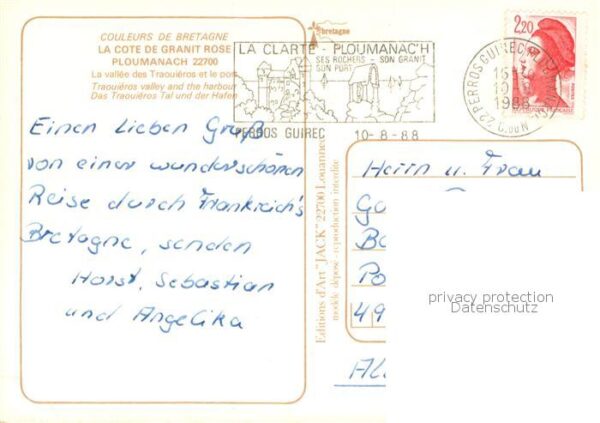 COULEURS DE BRETAGNE
LA COTE DE GRANIT ROSE
PLOUMANACH 22700
La vallée des Traouiéros et le port
Traouiéros valley and the harbour
Das Traouiéros Tal und der Hafen
bretagne
LA CLARTE - PLOUMANAC'H
SES ROCHERS - SON GRANIT
SON PORT
PERROS GUIREC 10-8-88
22 PERROS GUIREC
10
1988
2,20
Einen lieben Gruß
von einer wunderschönen
Reise durch Frankreich's
Bretagne, senden
Horst, Sebastian
und Angelika
Editions d'Art "JACK" 22700 Louannec
modèle déposé - reproduction interdite
Herrn u. Frau
49
privacy protection
Datenschutz